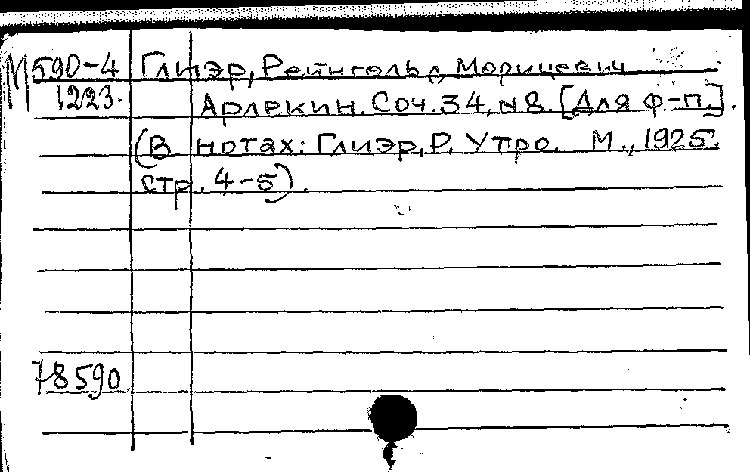 М 590-4 Глиэр, Рейнгольд Морицевич
1223. Арлекин. Соч. 34, №8. [Для ф-п.].
(В нотах: Глиэр, Р. Утро. М., 1925.
стр. 4-5).
78590